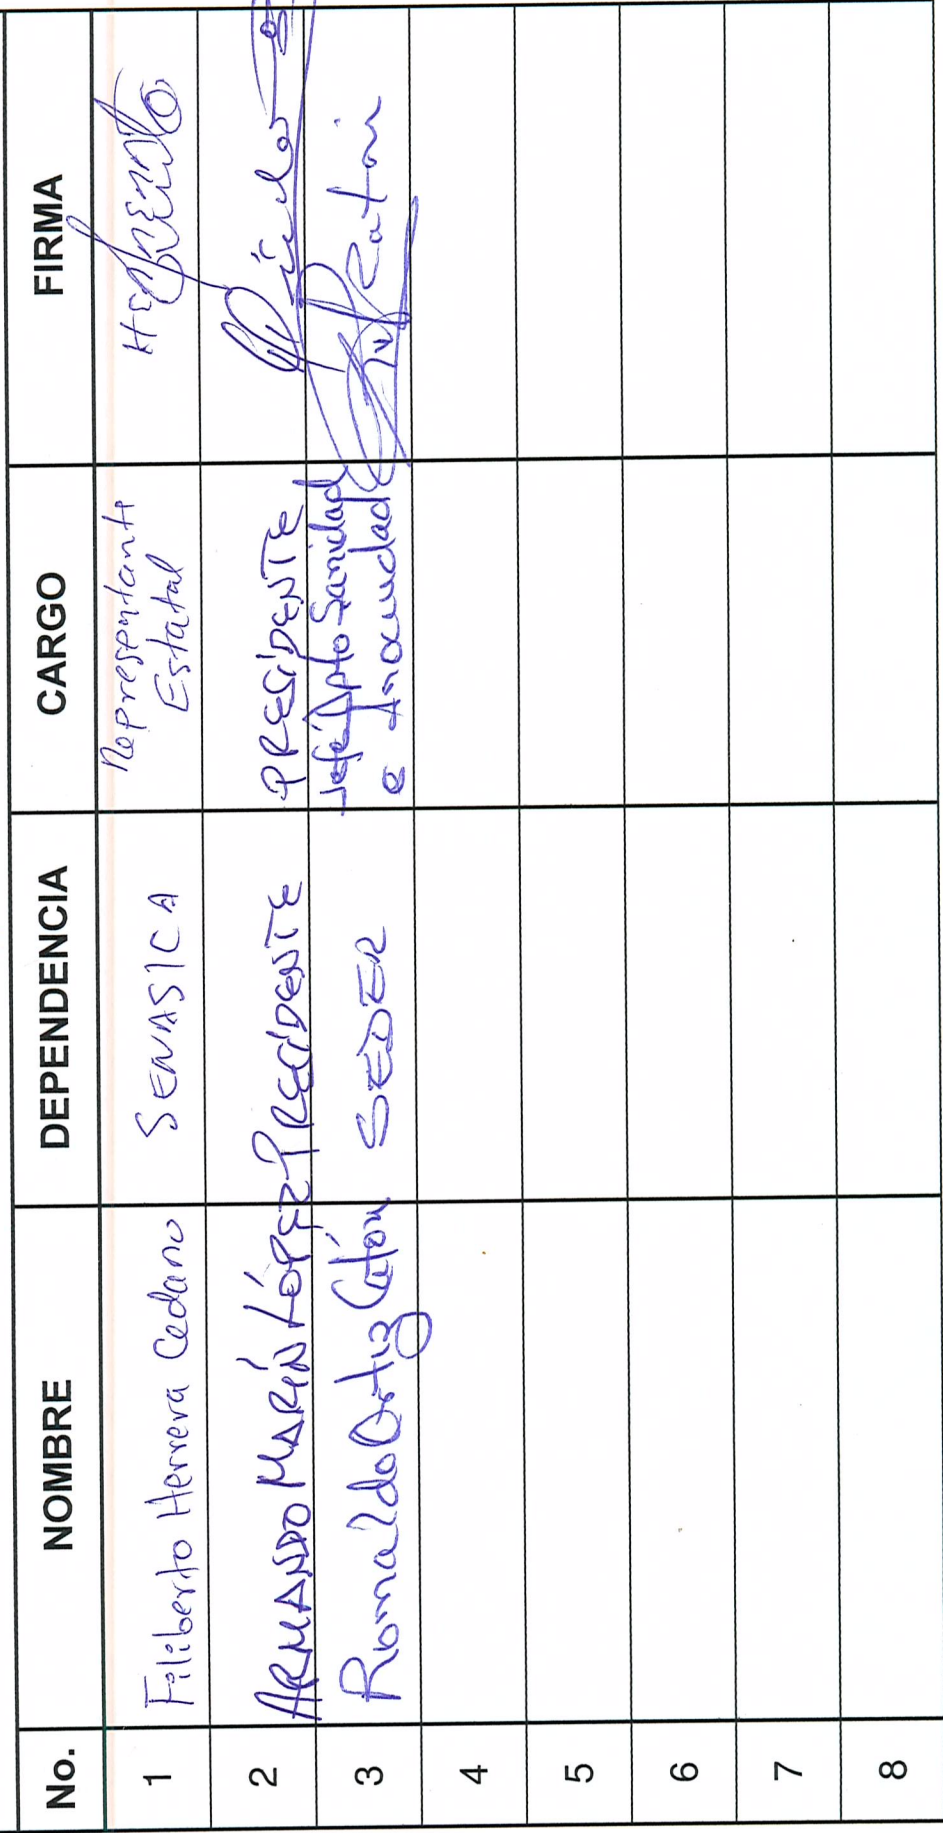 No. NOMBRE DEPENDENCIA CARGO FIRMA
1 Filiberto Herrera Cedano SENASICA Representante
Estatal
2 ARMANDO MARÍN LÓPEZ PRECIDENTE PRESIDENTE
3 Romaldo Ortiz Catón SEDER Jefe Dpto Sanidad
e Inocuidad
4
5
6
7
8